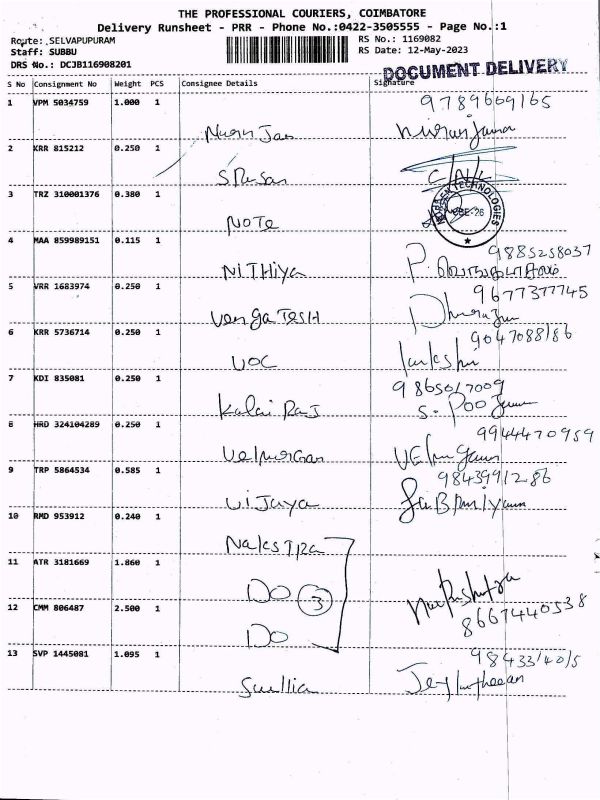 THE PROFESSIONAL COURIERS, COIMBATORE
Delivery Runsheet - PRR - Phone No.:0422-3505555 - Page No.:1
Route: SELVAPUPURAM RS No.: 1169082
Staff: SUBBU RS Date: 12-May-2023
DRS No.: DCJB116908201
DOCUMENT DELIVERY
S No Consignment No Weight PCS Consignee Details Signature
1 VPM 5034759 1.000 1
9789669165
2 KRR 815212 0.250 1
3 TRZ 310001376 0.380 1
NOTE
4 MAA 859989151 0.115 1
9885258037
NITHIYA
5 VRR 1683974 0.250 1
9677377745
VenGaTESH
6 KRR 5736714 0.250 1
9047088186
VOC
7 KDI 835081 0.250 1
9865017009
Kalai Raj
8 HRD 324104289 0.250 1
9944470959
Velmurgan
9 TRP 5864534 0.585 1
9843991286
Vijaya
10 RMD 953912 0.240 1
11 ATR 3181669 1.860 1
DO 3
12 CMM 806487 2.500 1
8667440538
DO
13 SVP 1445081 1.095 1
9843314015